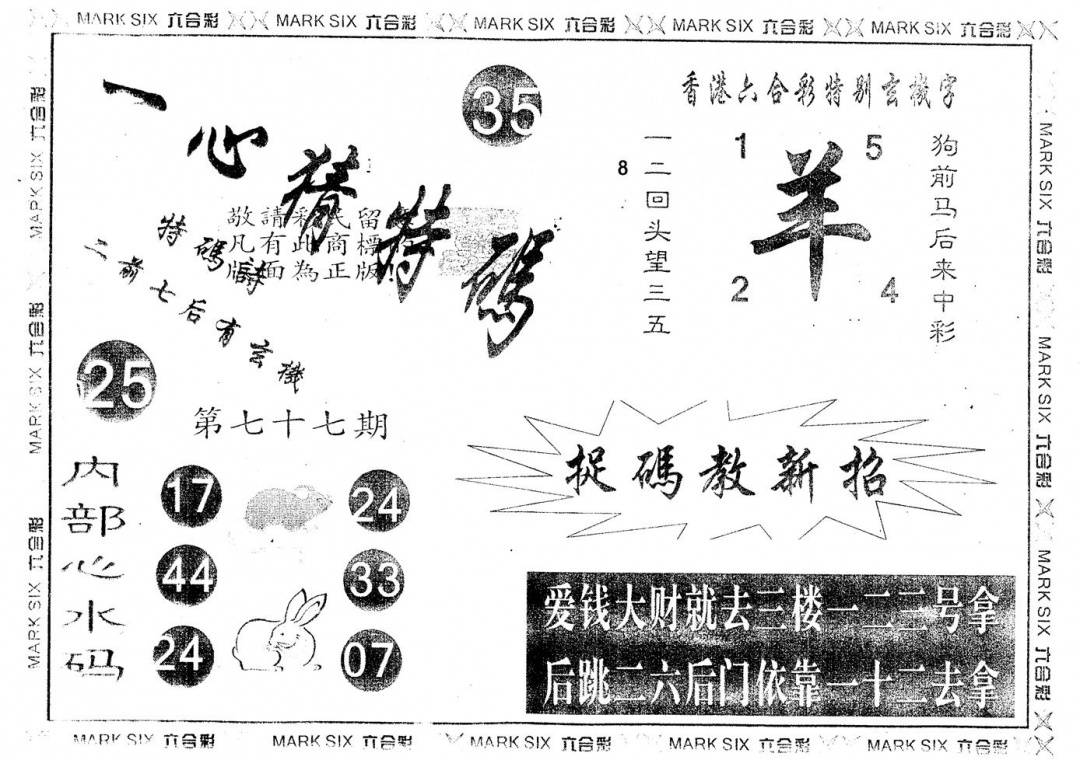 MARK SIX 六合彩 MARK SIX 六合彩 MARK SIX 六合彩 MARK SIX 六合彩 MARK SIX 六合彩
一心猜特碼
35
香港六合彩特别玄機字
敬請彩民留
凡有此商標
版面為正版!
特碼詩
二前七后有玄機
8
一二回头望三五
1
5
羊
2
4
狗前马后来中彩
25
第七十七期
捉碼教新招
内部心水码
17
24
44
33
24
07
爱钱大财就去三楼一二三号拿
后跳二六后门依靠一十二去拿
MARK SIX 六合彩
MARK SIX 六合彩
MARK SIX 六合彩
MARK SIX 六合彩
MARK SIX 六合彩
MARK SIX 六合彩
MARK SIX 六合彩 MARK SIX 六合彩 MARK SIX 六合彩 MARK SIX 六合彩 MARK SIX 六合彩